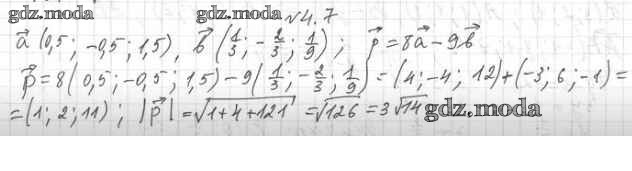 gdz.moda gdz.moda №4.7
a⃗ (0,5; -0,5; 1,5), b⃗ (1/3; -2/3; 1/9); p⃗ = 8a⃗ - 9b⃗
p⃗ = 8(0,5; -0,5; 1,5) - 9(1/3; -2/3; 1/9) = (4; -4; 12) + (-3; 6; -1) =
= (1; 2; 11); |p⃗| = √1+4+121 = √126 = 3√14 gdz.moda